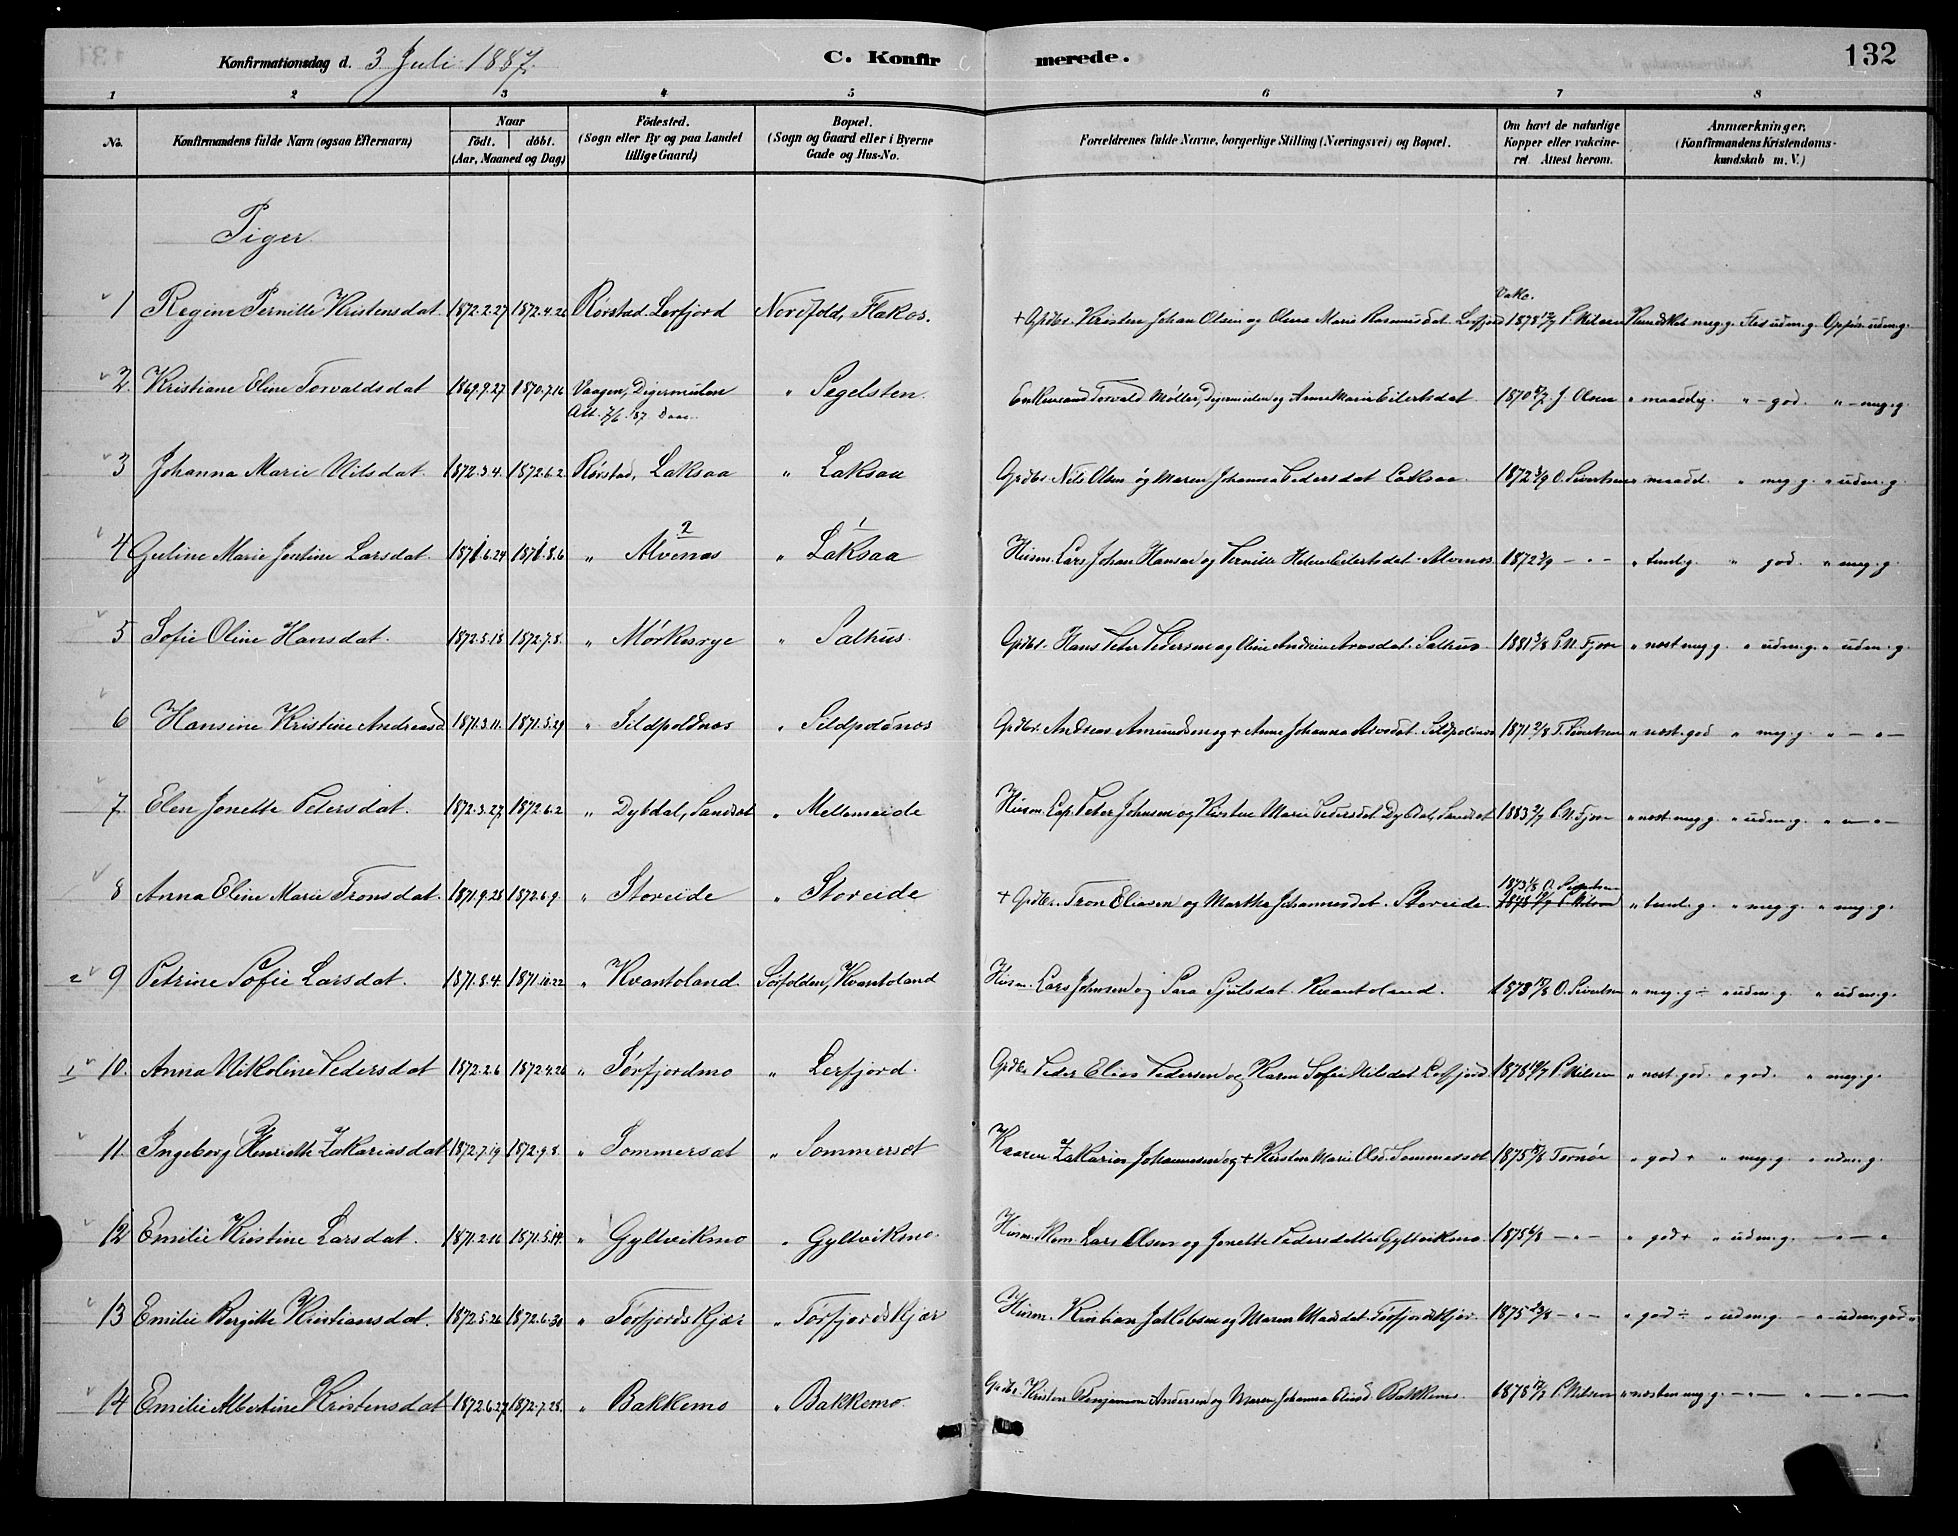 Konfirmationsdag d. 3 Juli 1887. C. Konfirmerede. 132
1 2 3 4 5 6 7 8
No. Konfirmandens fulde Navn (ogsaa Efternavn) Naar født. døbt. (Aar, Maaned og Dag) Fødested. (Sogn eller By og paa Landet tillige Gaard) Bopæl. (Sogn og Gaard eller i Byerne Gade og Hus-No. Forældrenes fulde Navne, borgerlige Stilling (Næringsvei) og Bopæl. Om havt de naturlige Kopper eller vakcineret Attest herom. Anmærkninger. (Konfirmandens Kristendomskundskab m. V.)
Piger
Vakc.
1 Regine Pernille Kristensdat 1872.2.27 1872.4.26 Rørstad Lerfjord Nordfold, Flakos. + Grdbr. Kristen Johan Olsen og Olina Marie Rasmusdat Lerfjord 1878 P. Nilsen Kundskab meg. g. Flid udm. g. Opførs. udm. g.
2. Kristiane Eline Torvaldsdat 1869.9.27 1870.7.16 Vaagen, Digermulen " Segelsten Enkemand Torvald Møller, Digermulen og Anne Marie Eilertsdat 1870 J. Olsen " maadelig. " - god. " - meg. g.
Att. 7/6 87
3 Johanna Marie Nilsdat 1872.3.4. 1872.6.2 Rørstad, Laksaa " Laksaa Grdbr. Nils Olsen og Maren Johanna Pedersdat Laksaa 1872 3/9 O. Sivertsen " maadel. " meg. g. " udm. g.
4 Guline Marie Jentine Larsdat 1871.6.24 1871.8.6 " Alvenes " Laksaa Husm. Lars Johan Hansen og Pernille Helene Eilertsdat Alvenes 1872 3/9 - " - " temd. g. " god. " meg. g.
5 Sofie Oline Hansdat. 1872.5.18 1872.7.8. " Mørkesvye " Salhus. Grdbr. Hans Peter Pedersen og Oline Andrine Arnsdat. Salhus 1881 3/8 P. N. Fjore " næst meg g. " udm. g. " udm. g.
6 Hansine Kristine Andreasd. 1871.3.11. 1871.5.29 " Sildpoldnæs " Sildpoldnæs Grdbr. Andreas Amundsen og + Anne Johanna Sildpoldnæs 1871 2/8 T. Sivertsen " næst. god " meg. g. " - " -
7. Elen Jonette Petersdat. 1872.3.27 1872.6.2 " Dybdal, Sandset " Mellemeide Husm. Peter Johnsen og Kirsten Marie Pedersdat Dybdal, Sandset 1883 P. N. Fjore " næst meg g. " udm. g. " - " -
8 Anna Eline Marie Tronsdat. 1871.9.28 1872.6.9. " Storeide " Storeide + Grdbr. Tron Eliasen og Martha Johannesdat. Storeide 1873 O. Sivertsen " temd. g. " meg g. " meg. g.
2 9 Petrine Sofie Larsdat. 1871.8.4. 1871.10.22 " Kvantoland. Sørfolden, Kvantoland Husm. Lars Johnsen og Sara Sjulsdat. Kvantoland. 1878 O. Sivertsen " meg. g ÷ " udm. g. " udm. g.
1 10. Anna Nikoline Pedersdat 1872.2.6 1872.4.26 " Tørfjordmo " Lerfjord. Grdbr Peder Elias Pedersen og Karen Sofie Nilsdat Lerfjord 1878 P. Nilsen " næst. god. " god. " meg. g.
11. Ingeborg Henriette Zakariasdat 1872.7.19 1872.9.8. " Sommersæt " Sommerset Zakarias Johannesen og + Kirsten Marie Olsd. Sommerset 1875 Tornøe " god + " meg. g. " udm. g.
12 Emilie Kristine Larsdat. 1871.2.16 1871.5.14. " Gyltvikmo " Gyltvikmo. Husm. Lars Olsen og Jonette Pedersdatter Gyltvikmo 1875 6/8 - " - " god + " udm. g. - " - "
13 Emilie Bergitte Kristiansdat. 1872.5.26 1872.6.30 " Tørfjordskjær " Tørfjordskjær Husm. Kristian Jakobsen og Maren Tørfjordskjær. 1875 - " - " god ÷ " udm. g. - " udm. god "
14 Emilie Albertine Kristensdat 1872.6.27 1872.7.28. " Bakkemo " Bakkemo. Grdbr. Kristen Benjamin Andersen og Maren Johanna Bakkemo 1878 P. Nilsen " næsten meg. g. - " - " - " -